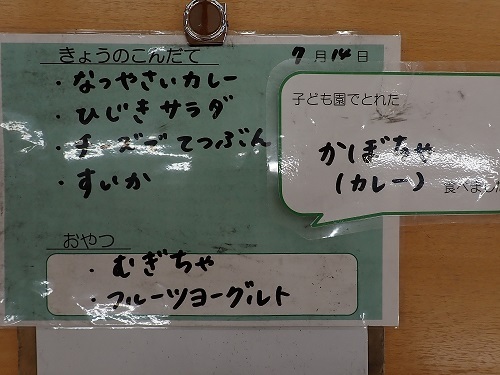 きょうのこんだて
7月14日
・なつやさいカレー
・ひじきサラダ
・チーズでてつぶん
・すいか
子ども園でとれた
かぼちゃ
(カレー) 食べました
おやつ
・むぎちゃ
・フルーツヨーグルト